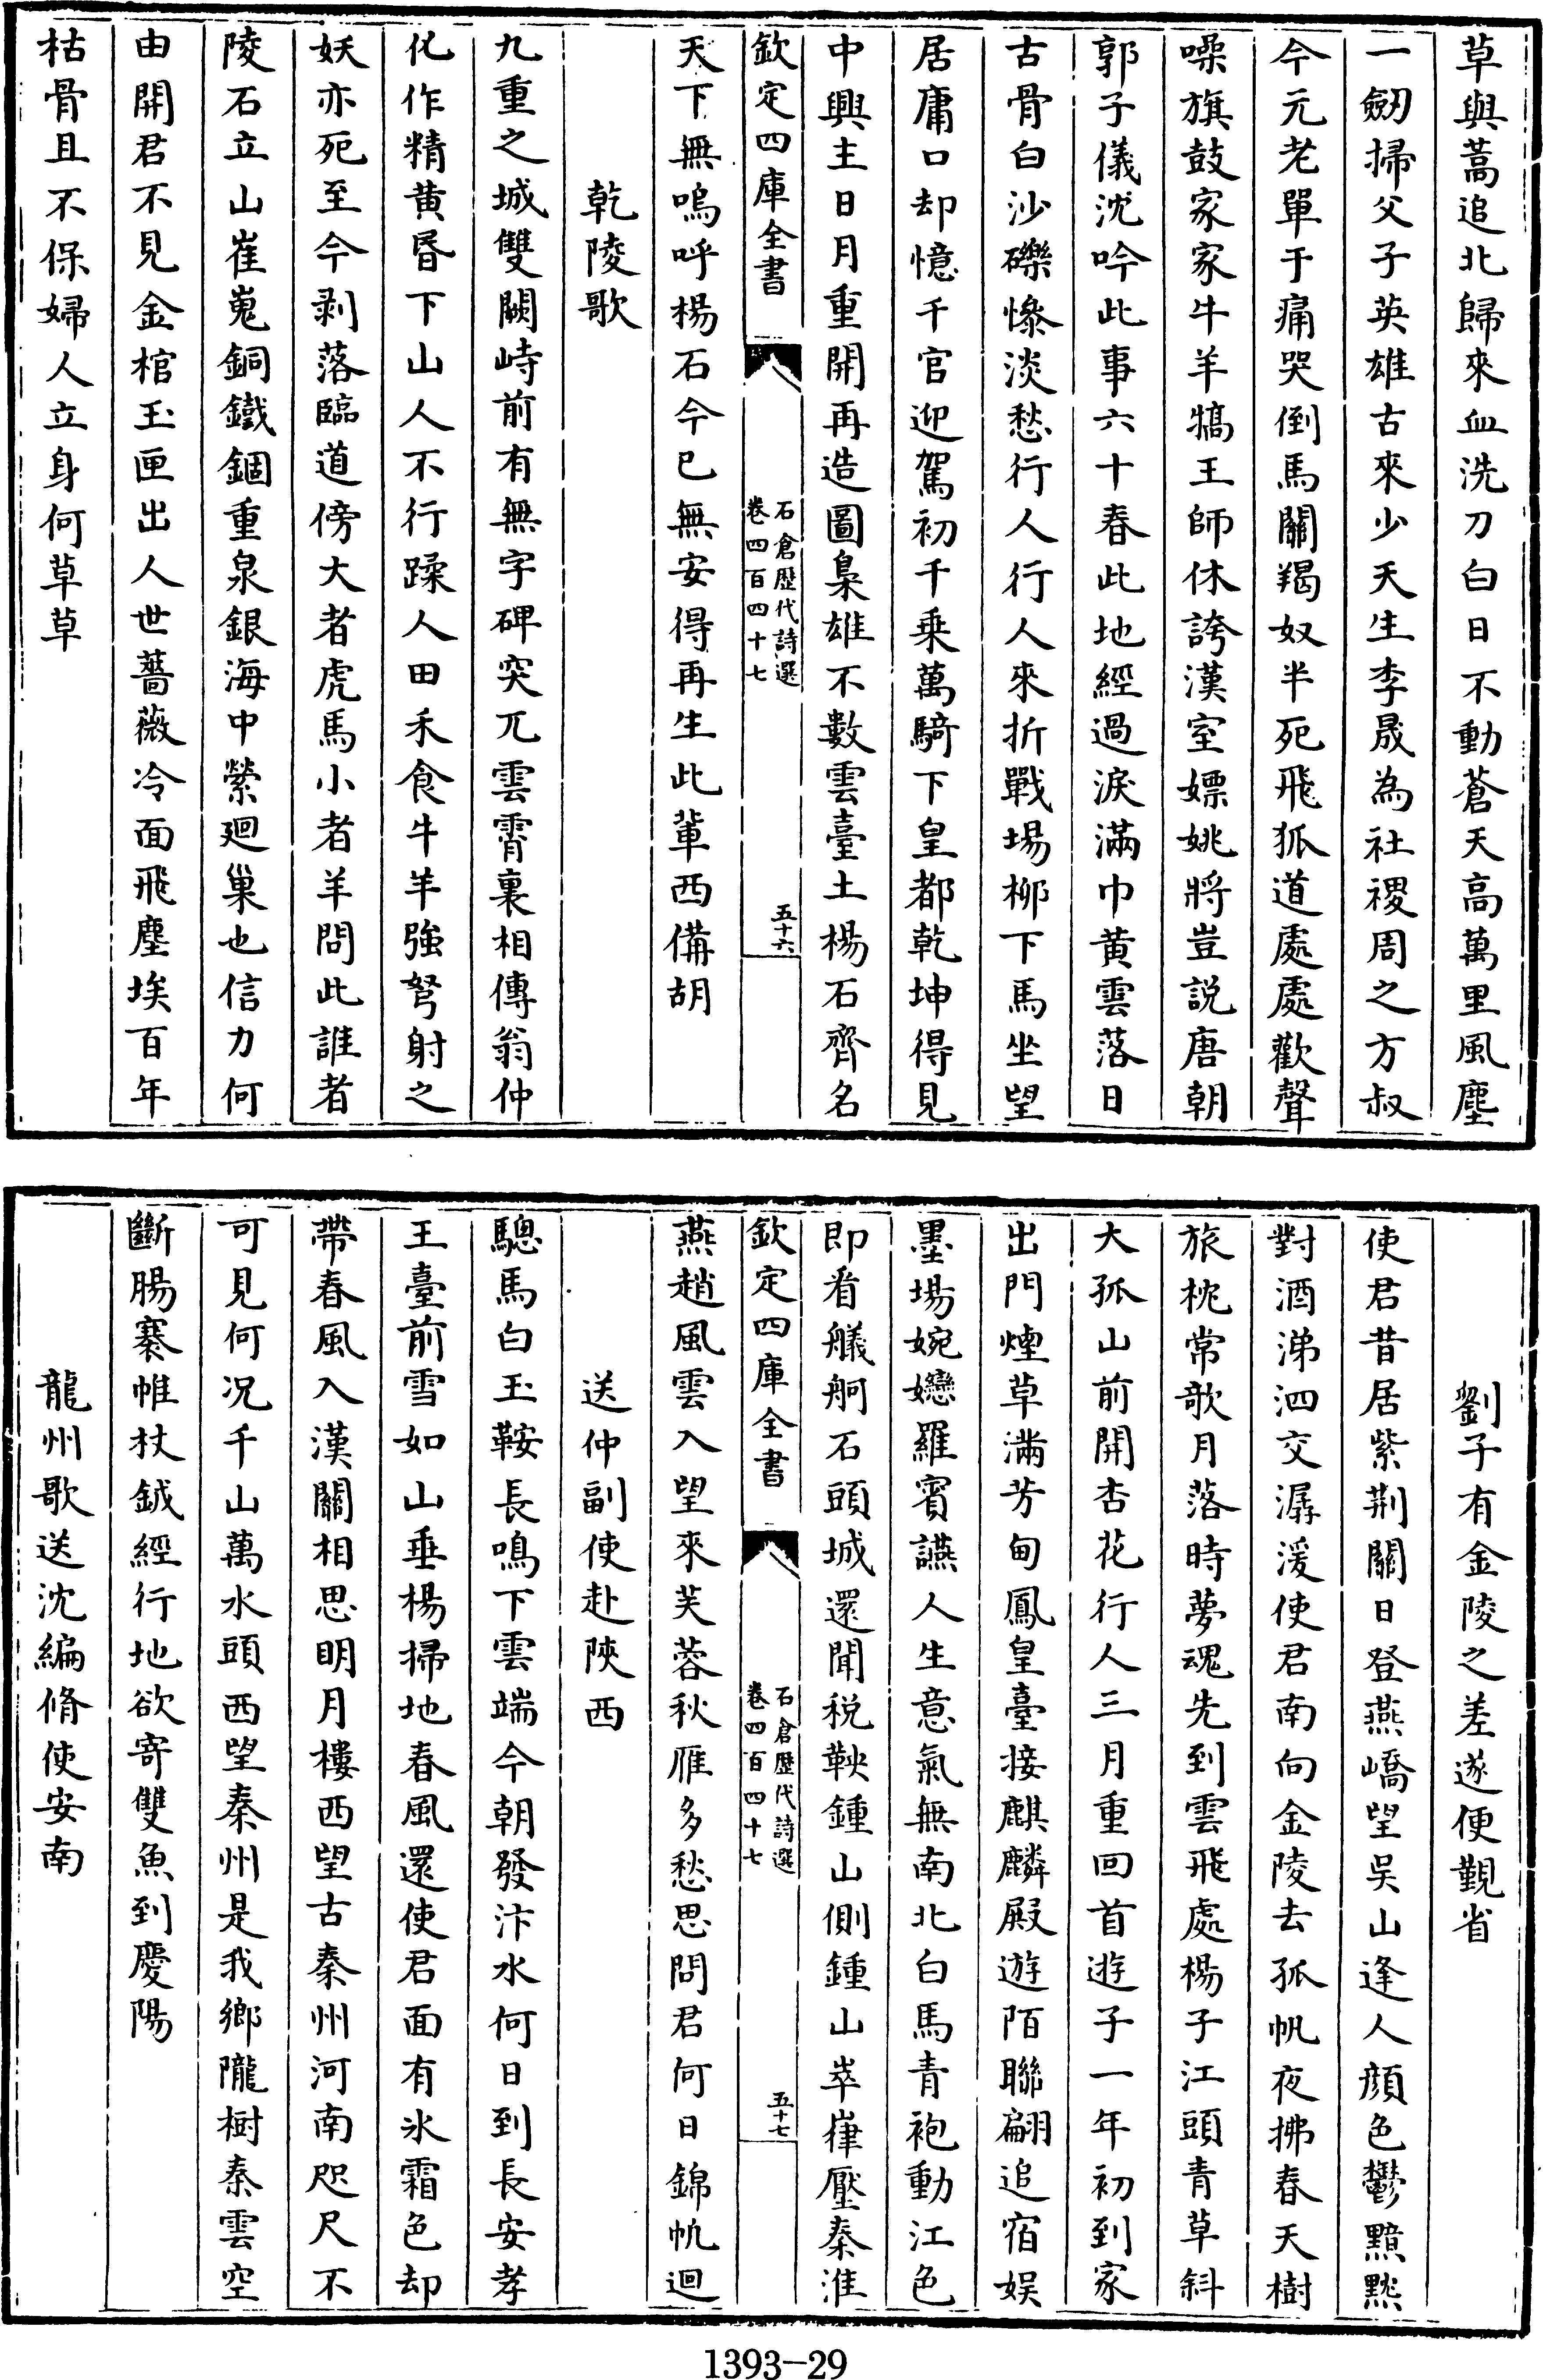 草與蒿追北歸來血洗刀白日不動蒼天高萬里風塵
一劒掃父子英雄古來少天生李晟為社稷周之方叔
今元老單于痛哭倒馬關羯奴半死飛狐道處處歡聲
噪旗鼓家家牛羊犒王師休誇漢室嫖姚將豈説唐朝
郭子儀沈吟此事六十春此地經過淚滿巾黄雲落日
古骨白沙礫慘淡愁行人行人來折戰場柳下馬坐望
居庸口却憶千官迎駕初千乗萬騎下皇都乾坤得見
中興主日月重開再造圖梟雄不數雲臺土楊石齊名
欽定四庫全書
石倉歴代詩選
卷四百四十七
五十六
天下無嗚呼楊石今已無安得再生此輩西備胡
乾陵歌
九重之城雙闕峙前有無字碑突兀雲霄裏相傳翁仲
化作精黄昬下山人不行蹂人田禾食牛羊強弩射之
妖亦死至今剥落臨道傍大者虎馬小者羊問此誰者
陵石立山崔嵬銅鐵錮重泉銀海中縈廻巢也信力何
由開君不見金棺玉匣出人世薔薇冷面飛塵埃百年
枯骨且不保婦人立身何草草
劉子有金陵之差遂便覲省
使君昔居紫荆關日登燕嶠望吳山逢人顔色鬱黯黙
對酒涕泗交潺湲使君南向金陵去孤帆夜拂春天樹
旅枕常歌月落時夢魂先到雲飛處楊子江頭青草斜
大孤山前開杏花行人三月重回首遊子一年初到家
出門煙草滿芳甸鳳皇臺接麒麟殿遊陌聯翩追宿娱
墨場婉孌羅賓讌人生意氣無南北白馬青袍動江色
即看艤舸石頭城還聞税鞅鍾山側鍾山崒嵂壓秦淮
欽定四庫全書
石倉歴代詩選
卷四百四十七
五十七
燕趙風雲入望來芙蓉秋雁多愁思問君何日錦帆迴
送仲副使赴陜西
驄馬白玉鞍長鳴下雲端今朝發汴水何日到長安孝
王臺前雪如山垂楊掃地春風還使君面有氷霜色却
帶春風入漢關相思明月樓西望古秦州河南咫尺不
可見何况千山萬水頭西望秦州是我鄉隴樹秦雲空
斷腸褰帷杖鉞經行地欲寄雙魚到慶陽
龍州歌送沈編脩使安南
1393-29